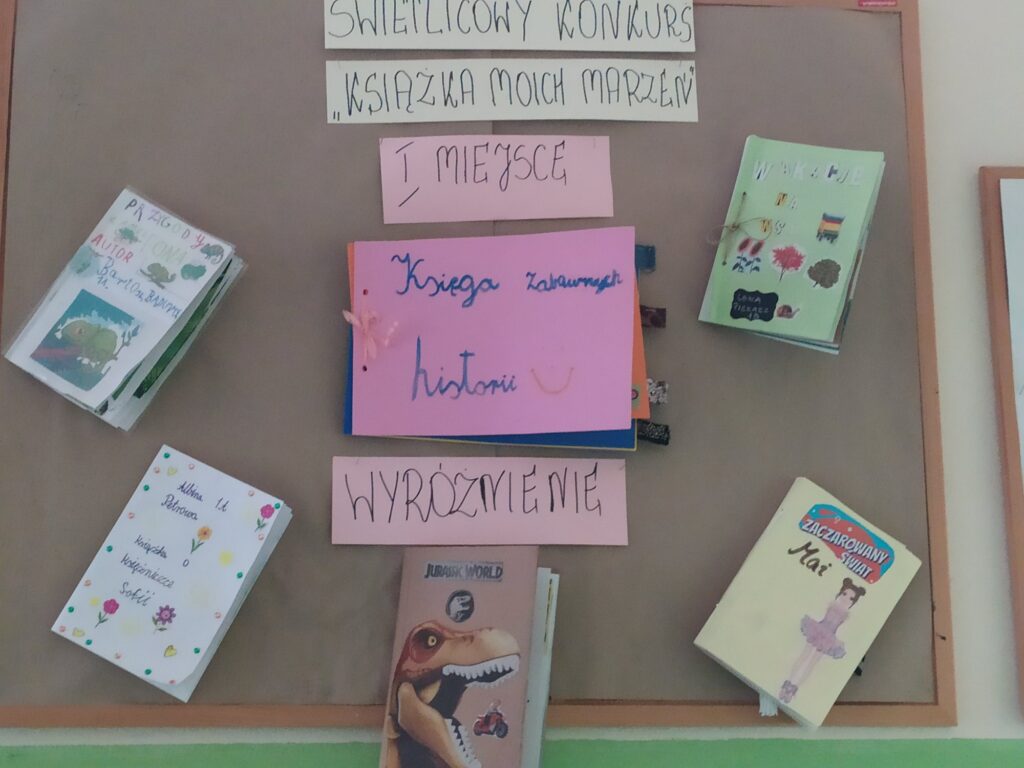 ŚWIETLICOWY KONKURS
„KSIĄŻKA MOICH MARZEŃ"
I MIEJSCE
Księga zabawnych
historii
WYRÓŻNIENIE
PRZYGODY
AUTOR
WAKACJE
NA
WSI
Albina 1A
Petrowa
Książka
o
Księżniczce
Sofii
JURASSIC WORLD
ZACZAROWANY
ŚWIAT
Mai